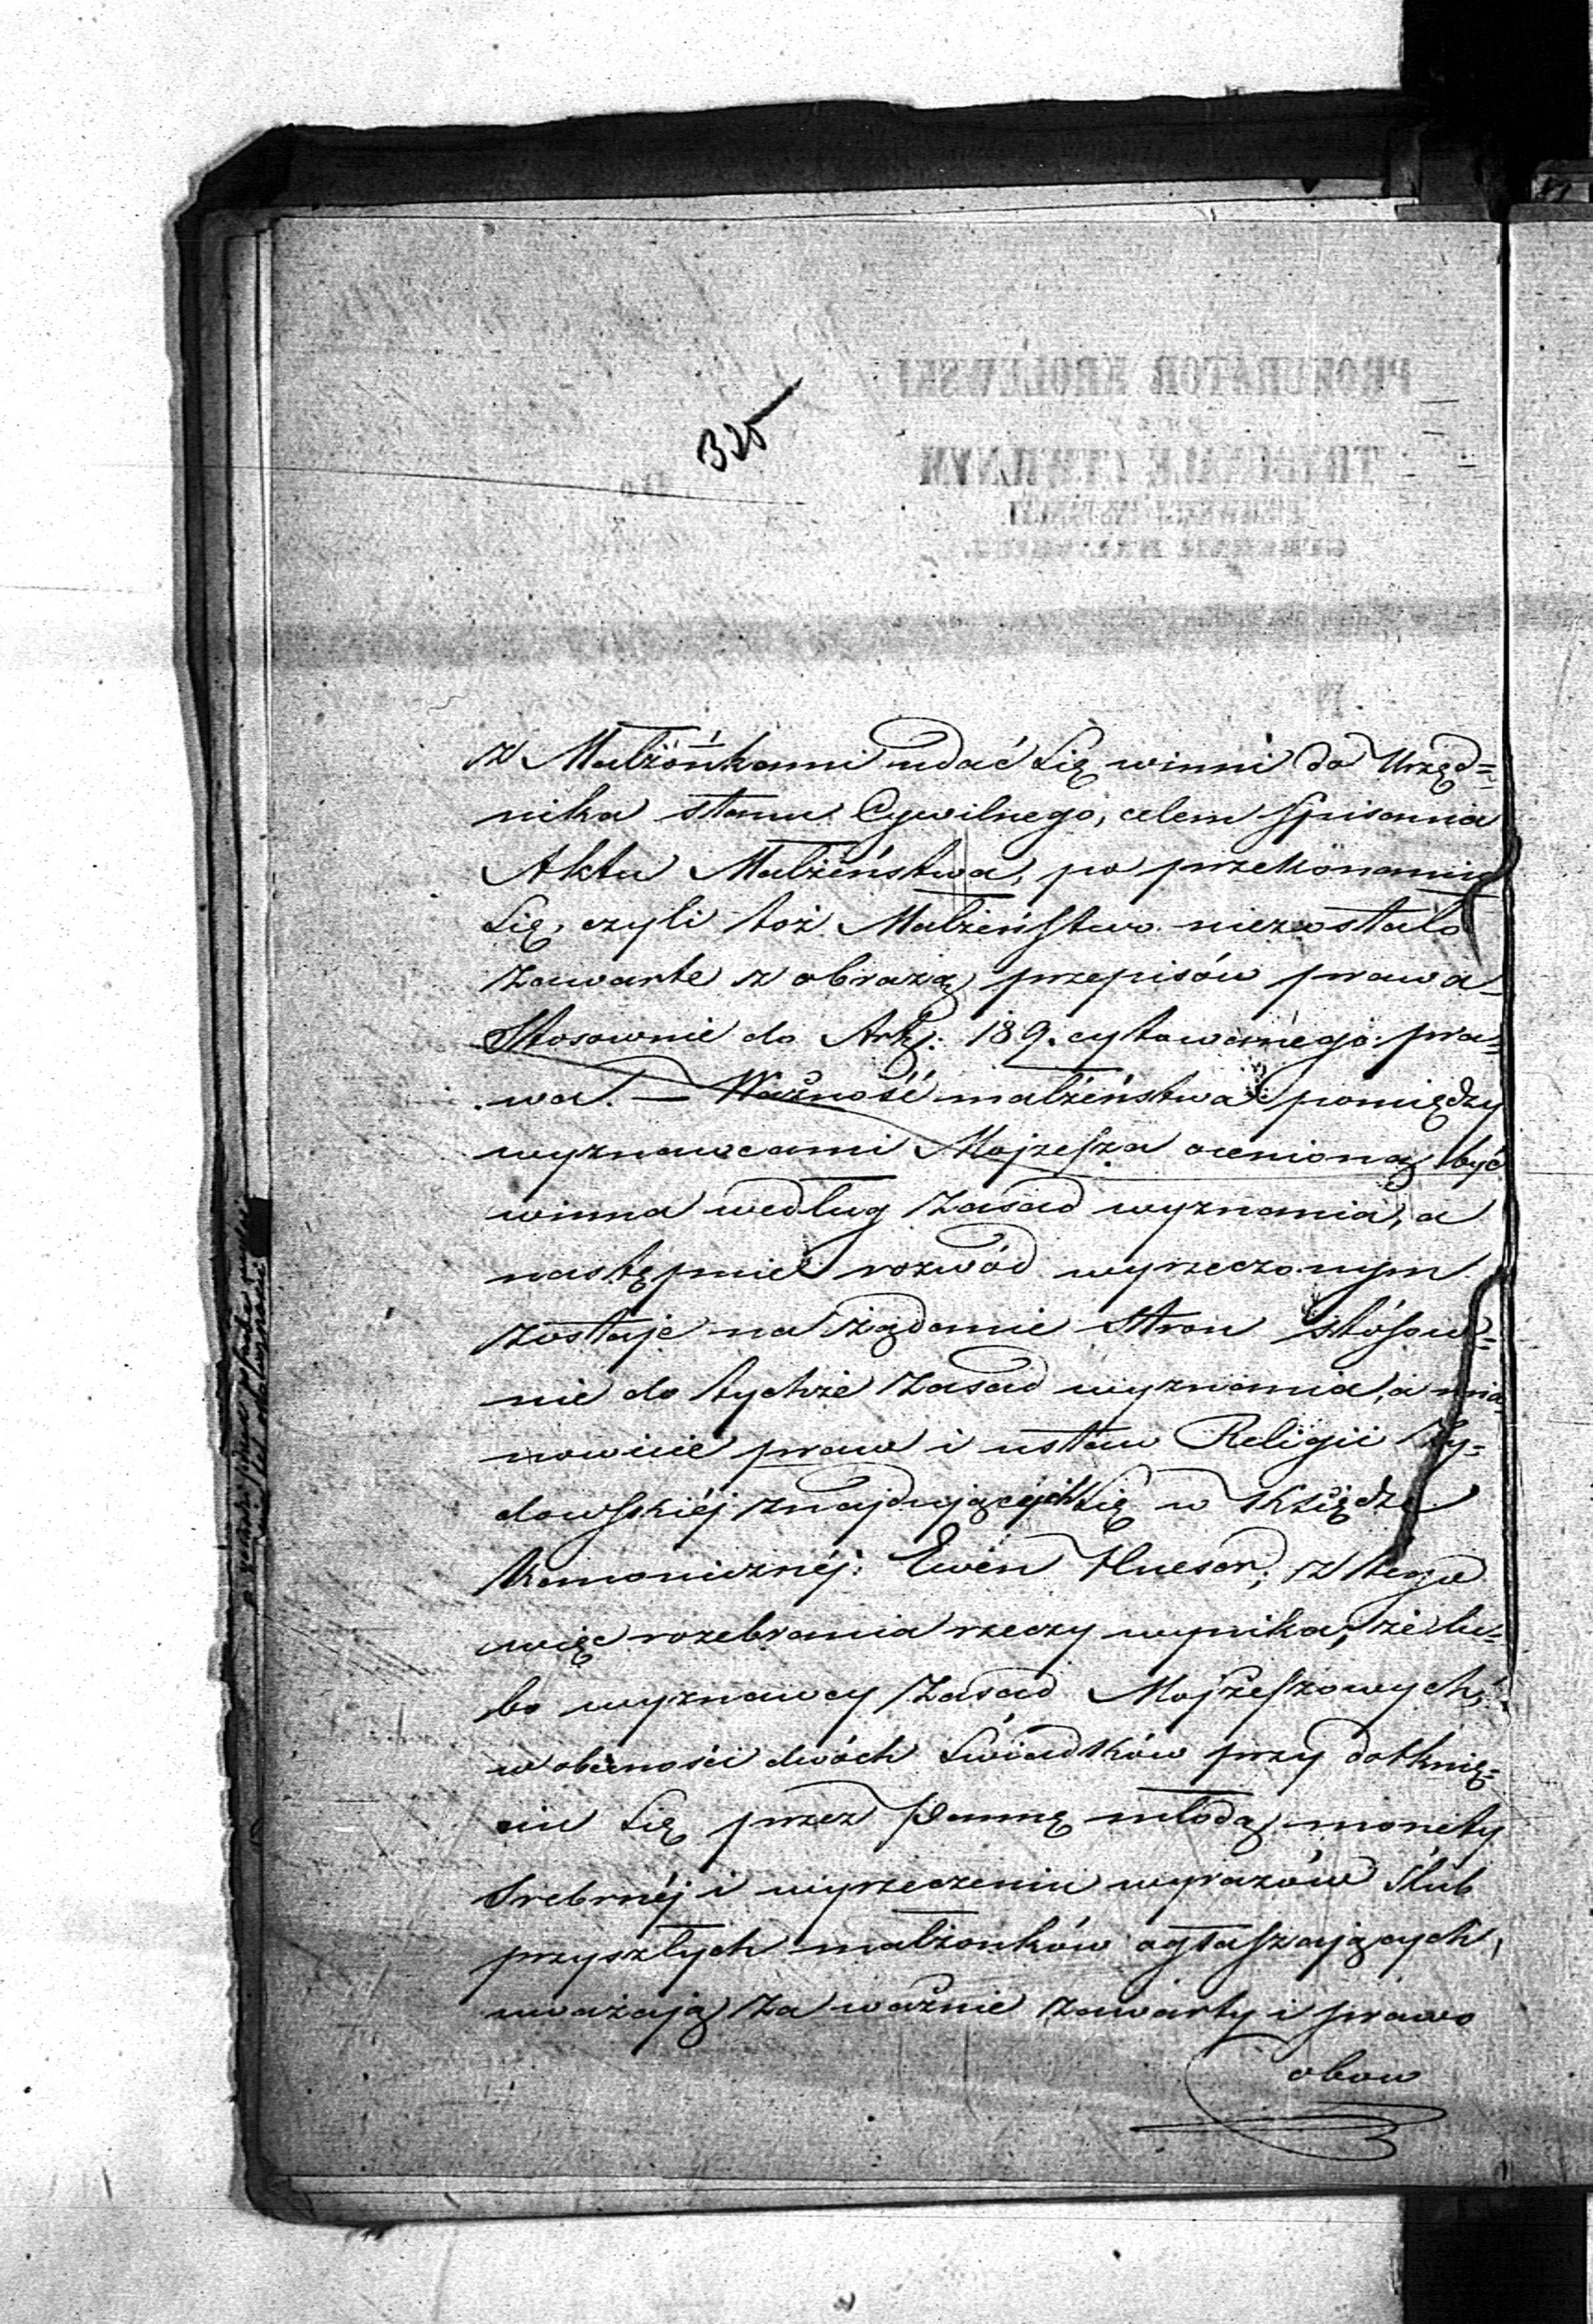 325
z Małżónkami udać się winni do Urzęd=
nika stanu Cywilnego, celem spisania
Aktu Małżeństwa, po przekonaniu
się, czyli toż Małżeństwo niezostało
zawarte z obrazą przepisów prawa
Stosownie do Arty: 189. cytowanego pra=
wa. — Ważność małżeństwa pomiędzy
wyznawcami Mojżesza ocenioną być
winna według zasad wyznania, a
następnie rozwód wyrzeczonym
zostaje na żądanie stron stósow=
nie do tychże zasad wyznania, a mia
nowicie praw i ustaw Religii Ży=
dowskiéj znajdujących się w Księdze
Kanonicznéj: Ewen Hueser; z tego
więc rozebrania rzeczy wynika, że lu=
bo wyznawcy zasad Mojżeszowych,
w obecności dwóch świadków przy dotknię=
ciu się przez Pannę młodą monety
srebrnéj i wyrzeczeniu wyrazów ślub
przyszłych małżonków ogłaszających,
uważają za ważnie zawarty i prawo
obow